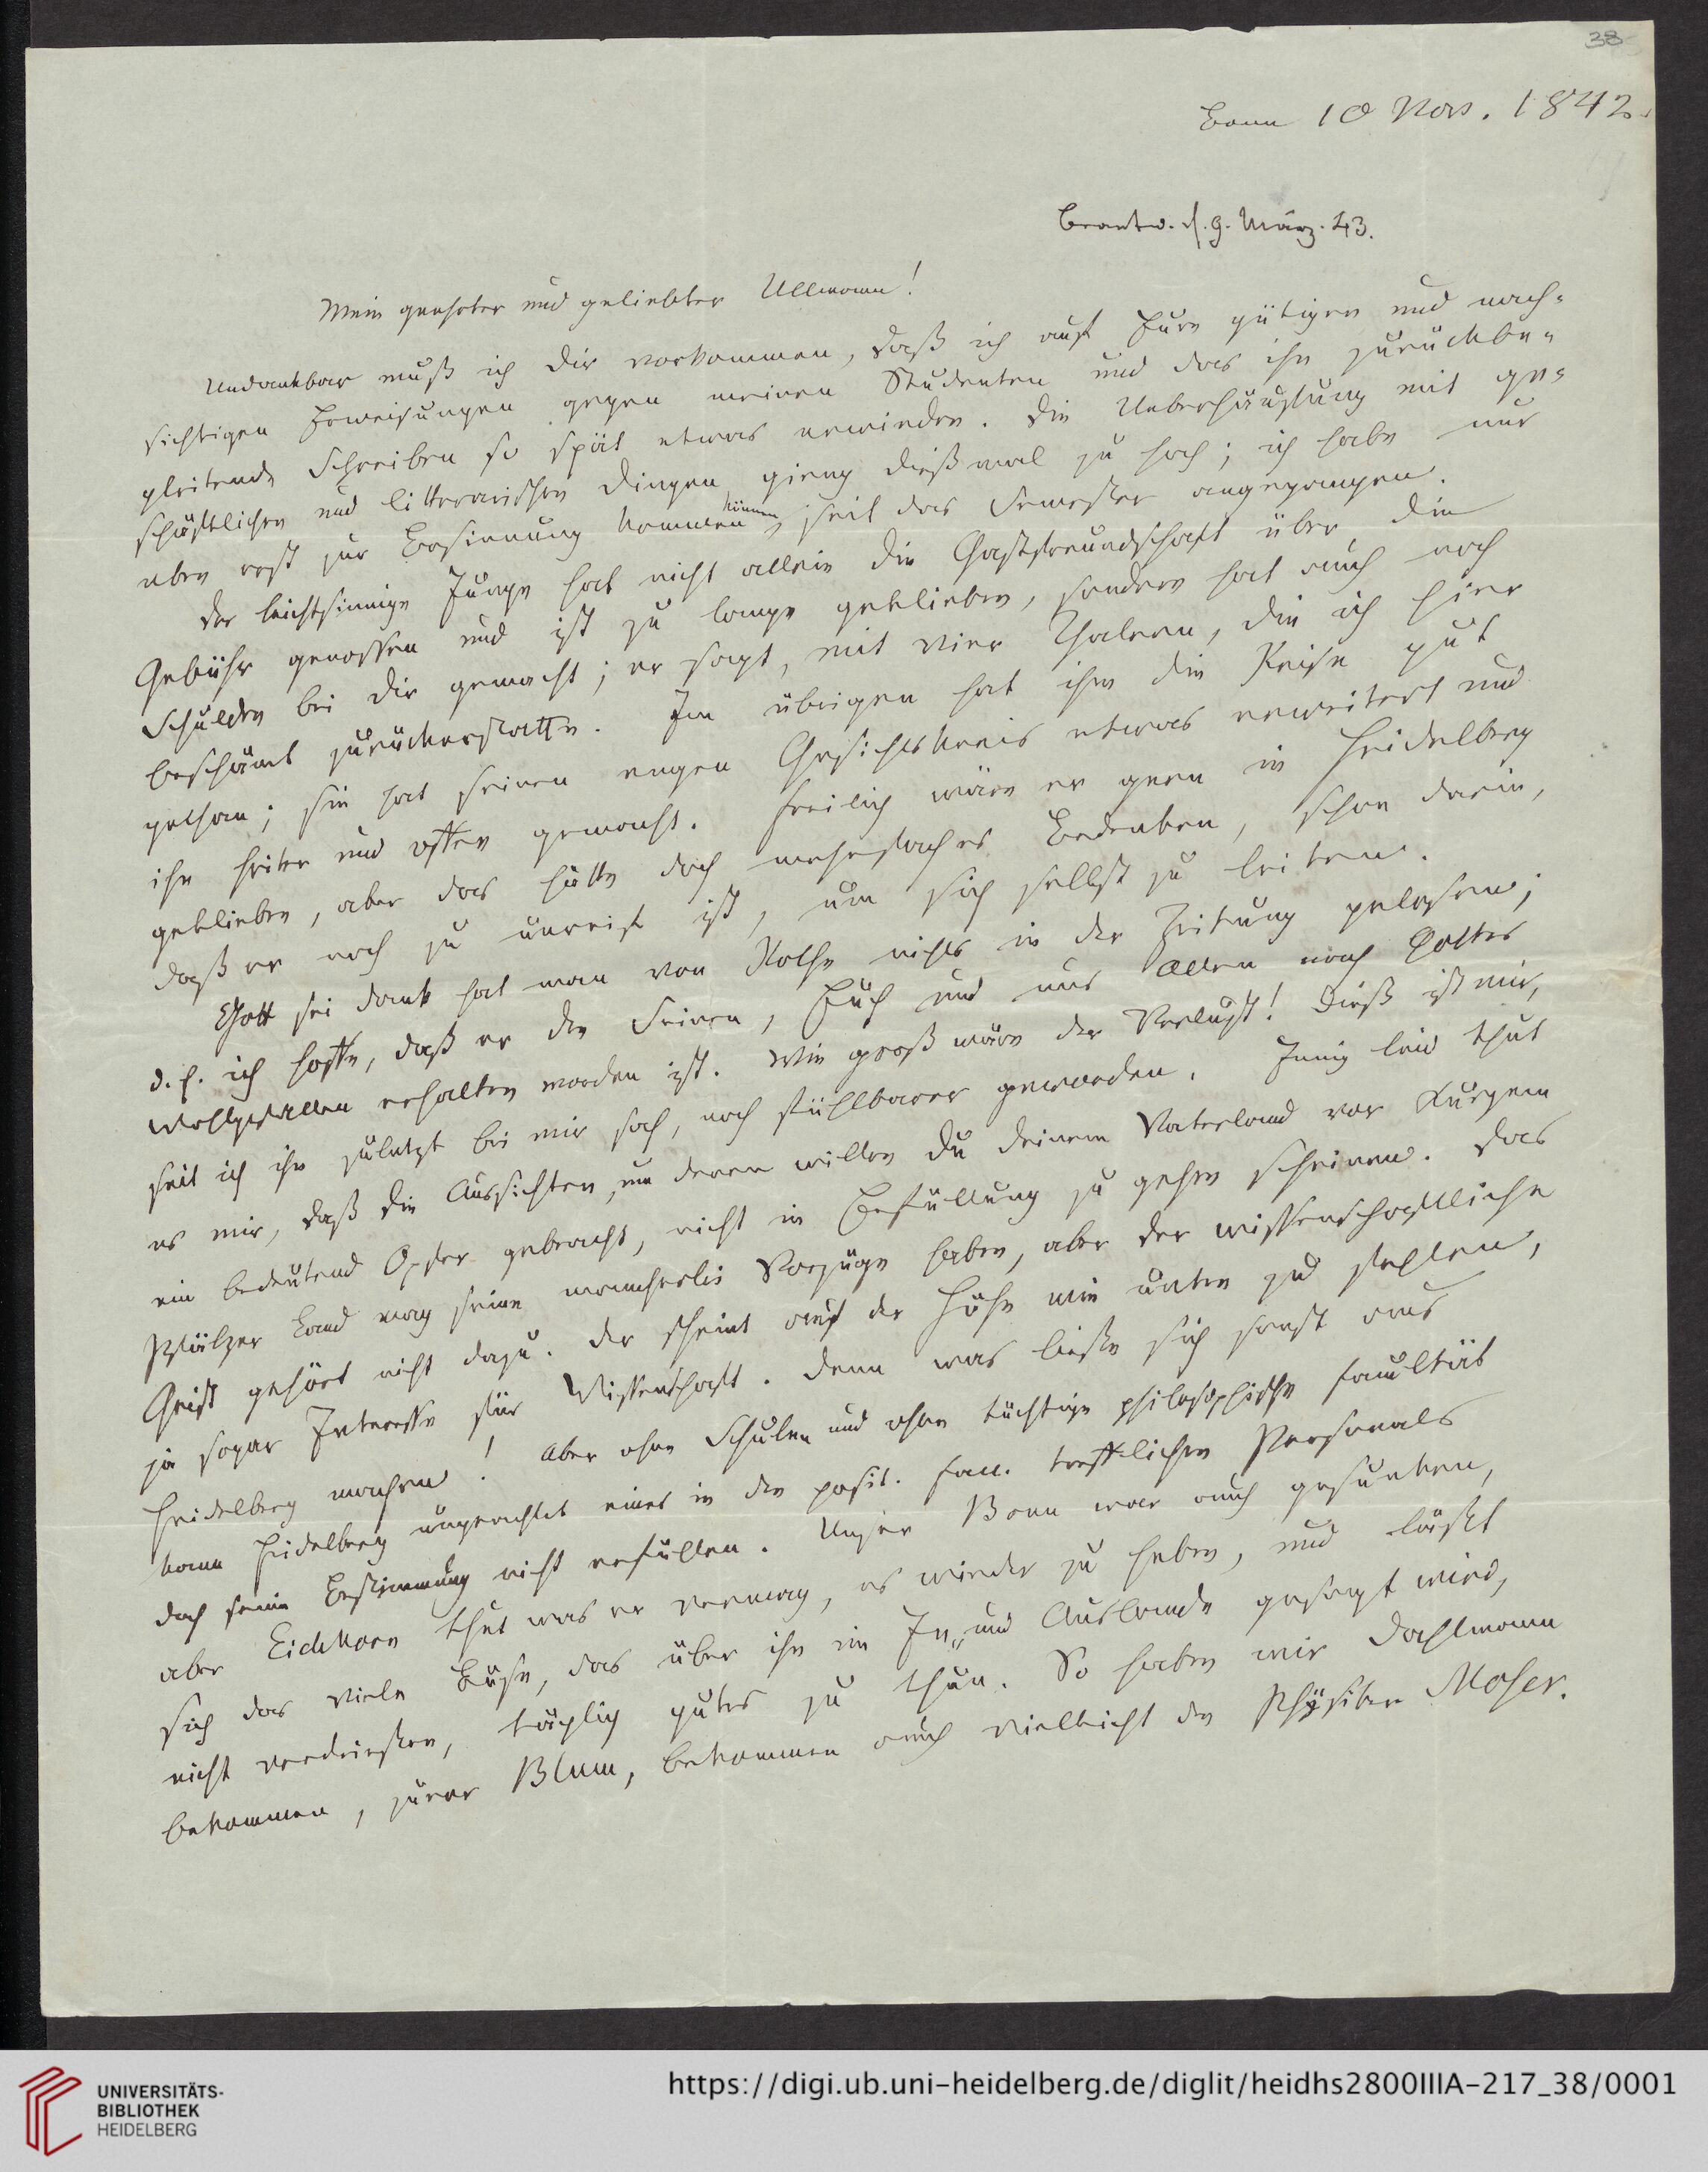 38
Bonn 10 Nov. 1842.
Beantw. d. 9. März. 43.
Mein geehrter und geliebter Ullmann!
Undankbar muß ich Dir vorkommen, daß ich auf Eure gütigen und nach-
sichtigen Erweisungen gegen meinen Studenten und das ihn zurückbe-
gleitende Schreiben so spät etwas erwiedre. Die Ueberhäufung mit ge-
schäftlichen und litterarischen Dingen gieng dießmal zu hoch; ich habe nur
eben erst zur Besinnung kommen können, seit das Semester angegangen.
Der leichtsinnige Junge hat nicht allein die Gastfreundschaft über die
Gebühr genossen und ist zu lange geblieben, sondern hat auch noch
Schulden bei Dir gemacht; er sagt, mit vier Thalern, die ich hier
beschämt zurückerstatte. Im übrigen hat ihm die Reise gut
gethan; sie hat seinen engen Gesichtskreis etwas erweitert und
ihn heiter und offen gemacht. Freilich wäre er gern in Heidelberg
geblieben, aber das hätte doch mehrfaches Bedenken, schon darin,
daß er noch zu unreif ist, um sich selbst zu leiten.
Gott sei Dank hat man von Rothe nichts in der Zeitung gelesen;
d. h. ich hoffe, daß er den Seinen, Euch und uns Allen nach Gottes
Wohlgefallen erhalten worden ist. Wie groß wäre der Verlust! Dieß ist mir,
seit ich ihn zuletzt bei mir sah, noch fühlbarer geworden. Innig leid thut
es mir, daß die Aussichten, um deren willen Du Deinem Vaterland vor Kurzem
ein bedeutend Opfer gebracht, nicht in Erfüllung zu gehen scheinen. Das
Pfälzer Land mag seine mancherlei Vorzüge haben, aber der wissenschaftliche
Geist gehört nicht dazu. Der scheint auf der Höhe wie unten zu fehlen,
ja sogar Interesse für Wissenschaft. Denn was ließe sich sonst aus
Heidelberg machen! Aber ohne Schulen und ohne tüchtige philosophische Facultät
kann Heidelberg ungeachtet eines in den posit. Fac. trefflichen Personals
doch seine Bestimmung nicht erfüllen. Unser Bonn war auch gesunken,
aber Eichhorn thut was er vermag, es wieder zu heben, und läßt
sich das viele Böse, das über ihn im In- und Auslande gesagt wird,
nicht verdrießen, täglich gutes zu thun. So haben wir Dahlmann
bekommen, zuvor Blum, bekommen auch vielleicht den Physiker Moser.
UNIVERSITÄTS-
BIBLIOTHEK
HEIDELBERG
https://digi.ub.uni-heidelberg.de/diglit/heidhs2800IIIA-217_38/0001